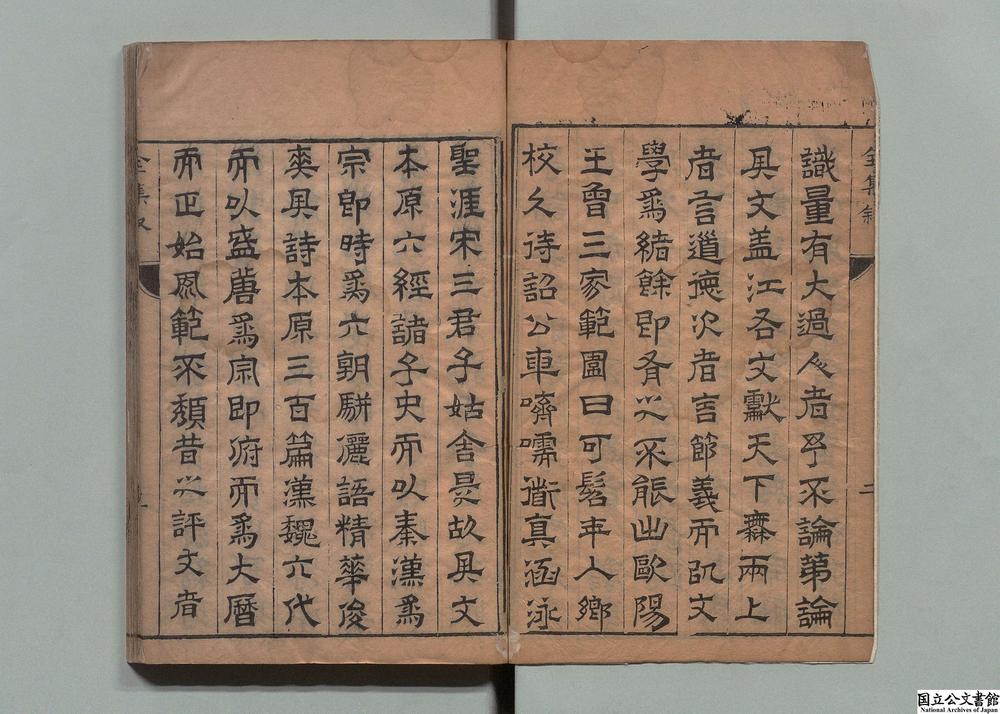 全集叙
二
識量有大過人者乎不論第論
其文盖江右文獻天下無兩上
者言道德次者言節義而訊文
學爲緒餘即有之不能出歐陽
王曾三家範圍曰可髫年入鄉
校久待詔公車嚌嚅道真涵泳
聖涯宋三君子姑舍是故其文
本原六經諸子史而以秦漢爲
宗即時爲六朝駢儷語精華俊
爽其詩本原三百篇漢魏六代
而以盛唐爲宗即俯而爲大曆
而正始風範不頹昔之評文者
全集叙
国立公文書館
National Archives of Japan